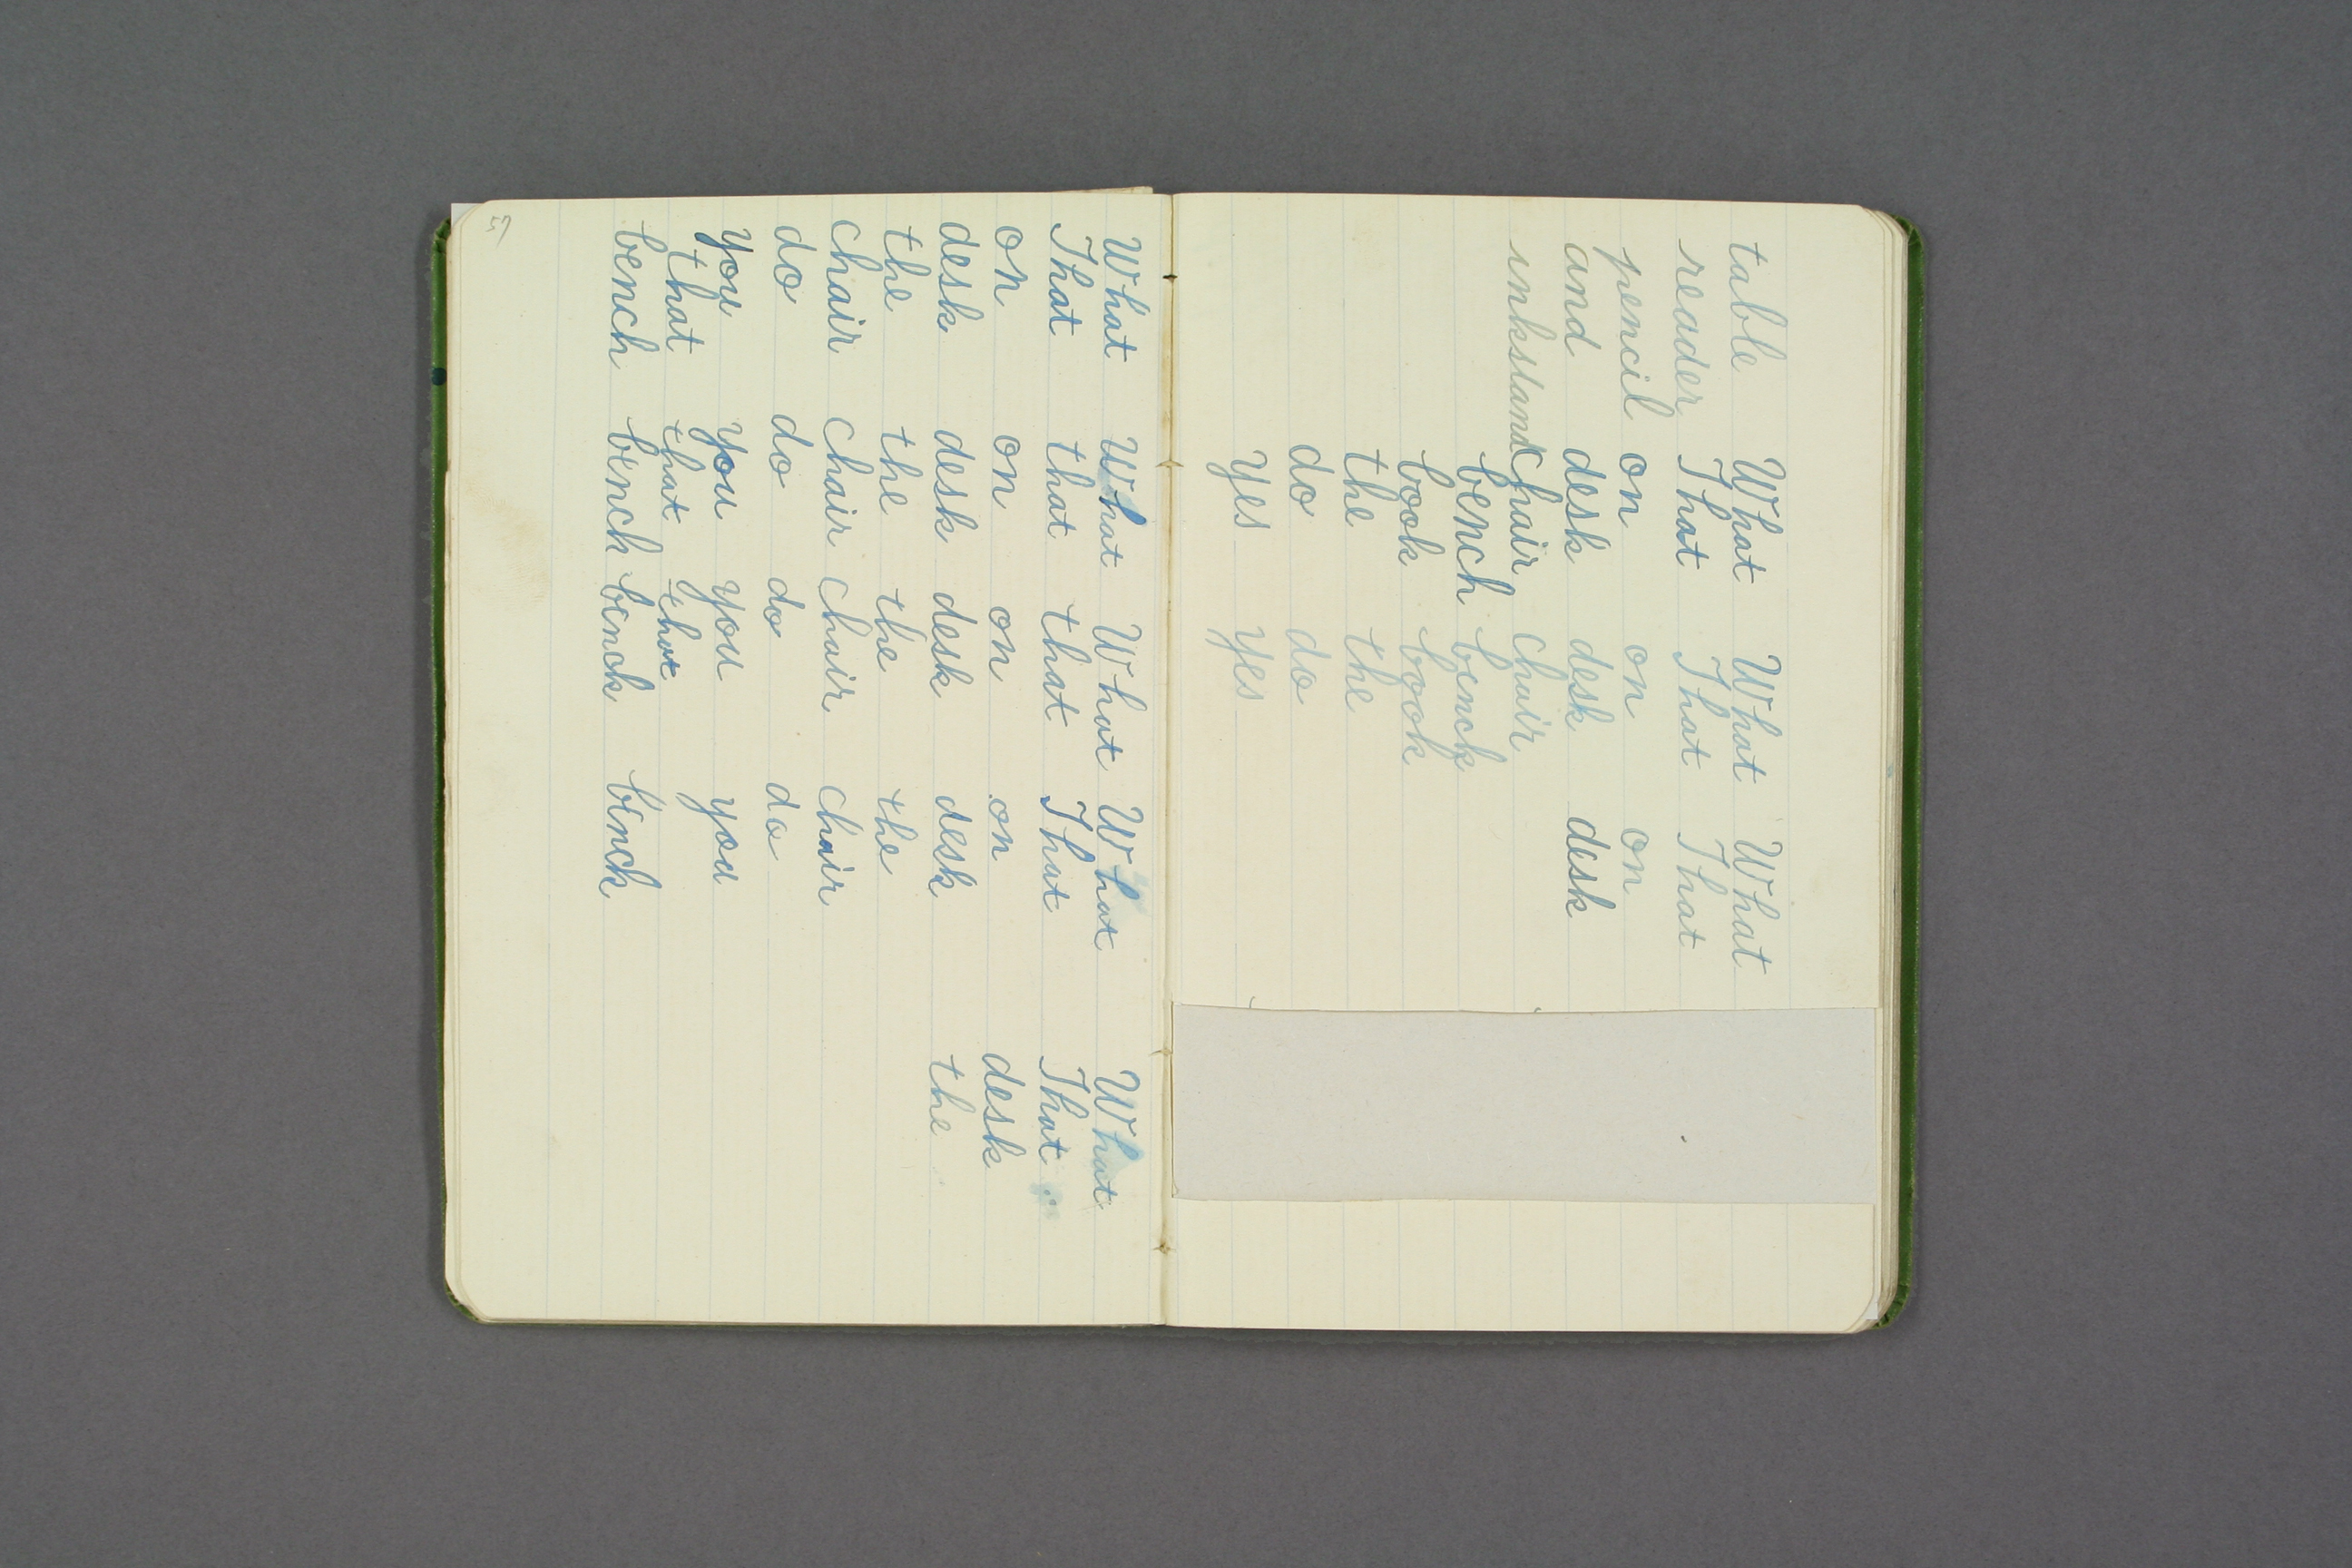 table What What What
reader That That That
pencil on on on
and desk desk desk
inkstand chair chair
bench bench
book book
the the
do do
yes yes
What What What What What
That that that That That
on on on on desk
desk desk desk desk the
the the the the
chair chair chair chair
do do do do
you you you you
that that that
bench bench bench bench